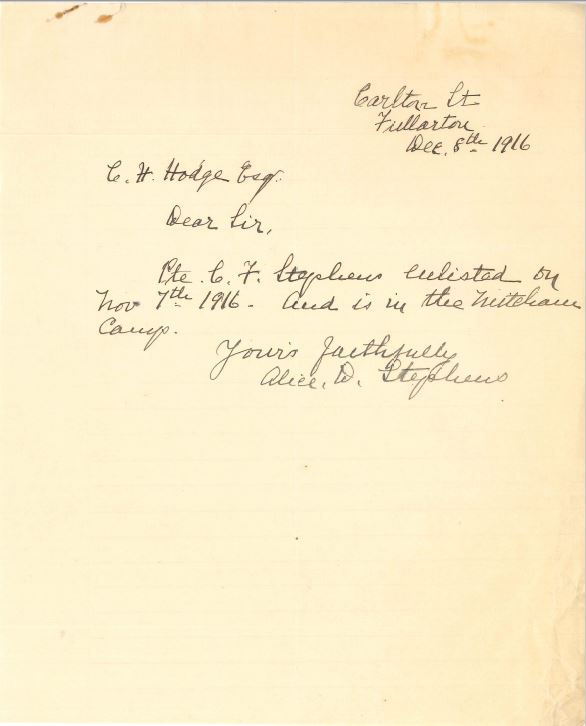 Carlton St
Fullarton
Dec. 8th 1916
C. H. Hodge Esq.
Dear Sir,
Pte. C. F. Stephens enlisted on
Nov 7th 1916. And is in the Mitcham
Camp.
Yours faithfully
Alice. D. Stephens